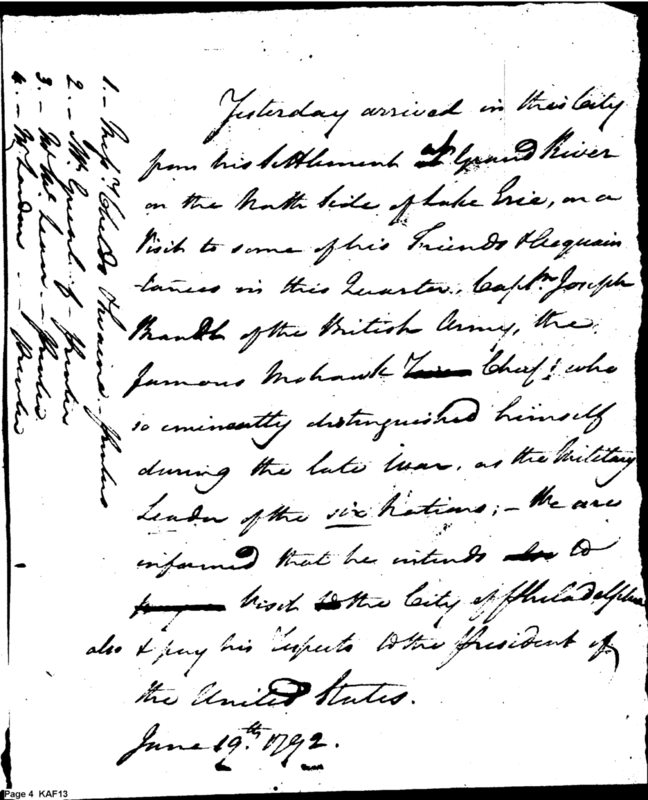 Yesterday arrived in this City
from his Settlement at Grand River
on the North Side of Lake Erie, on a
Visit to some of his Friends & Acquain
tances in this Quarter, Captn Joseph
Brandt of the British Army, the
famous Mohawk Chief; who
so eminently distinguished himself
during the late War, as the Military
Leader of the six Nations; – We are
informed that he intends to
Visit the City of Philadelphia
also & pay his respects to the President of
the United States.
June 19th 1792.
1. – Messrs Childs & Swaine – Printers
2. – Mr Greenleaf – Printer
3. – Printer
4. – Mr Loudon – Printer
Page 4 KAF13